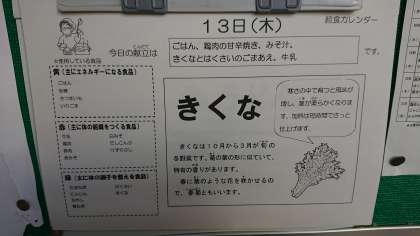 13日(木)
給食カレンダー
今日の献立は
ごはん、鶏肉の甘辛焼き、みそ汁、
きくなとはくさいのごまあえ、牛乳
です。
※使用している食品
黄(主にエネルギーになる食品)
ごはん
さつまいも
赤(主に体の組織をつくる食品)
牛乳
鶏肉
緑(主に体の調子を整える食品)
きくな
寒さの中で育つと風味が
増し、葉が柔らかくなりま
す。加熱は短時間でさっと
仕上げます。
きくなは10月から3月が旬の
冬野菜です。菊の葉の形に似ていて、
特有の香りがあります。
春に菊のような花を咲かせるの
で、春菊ともいいます。